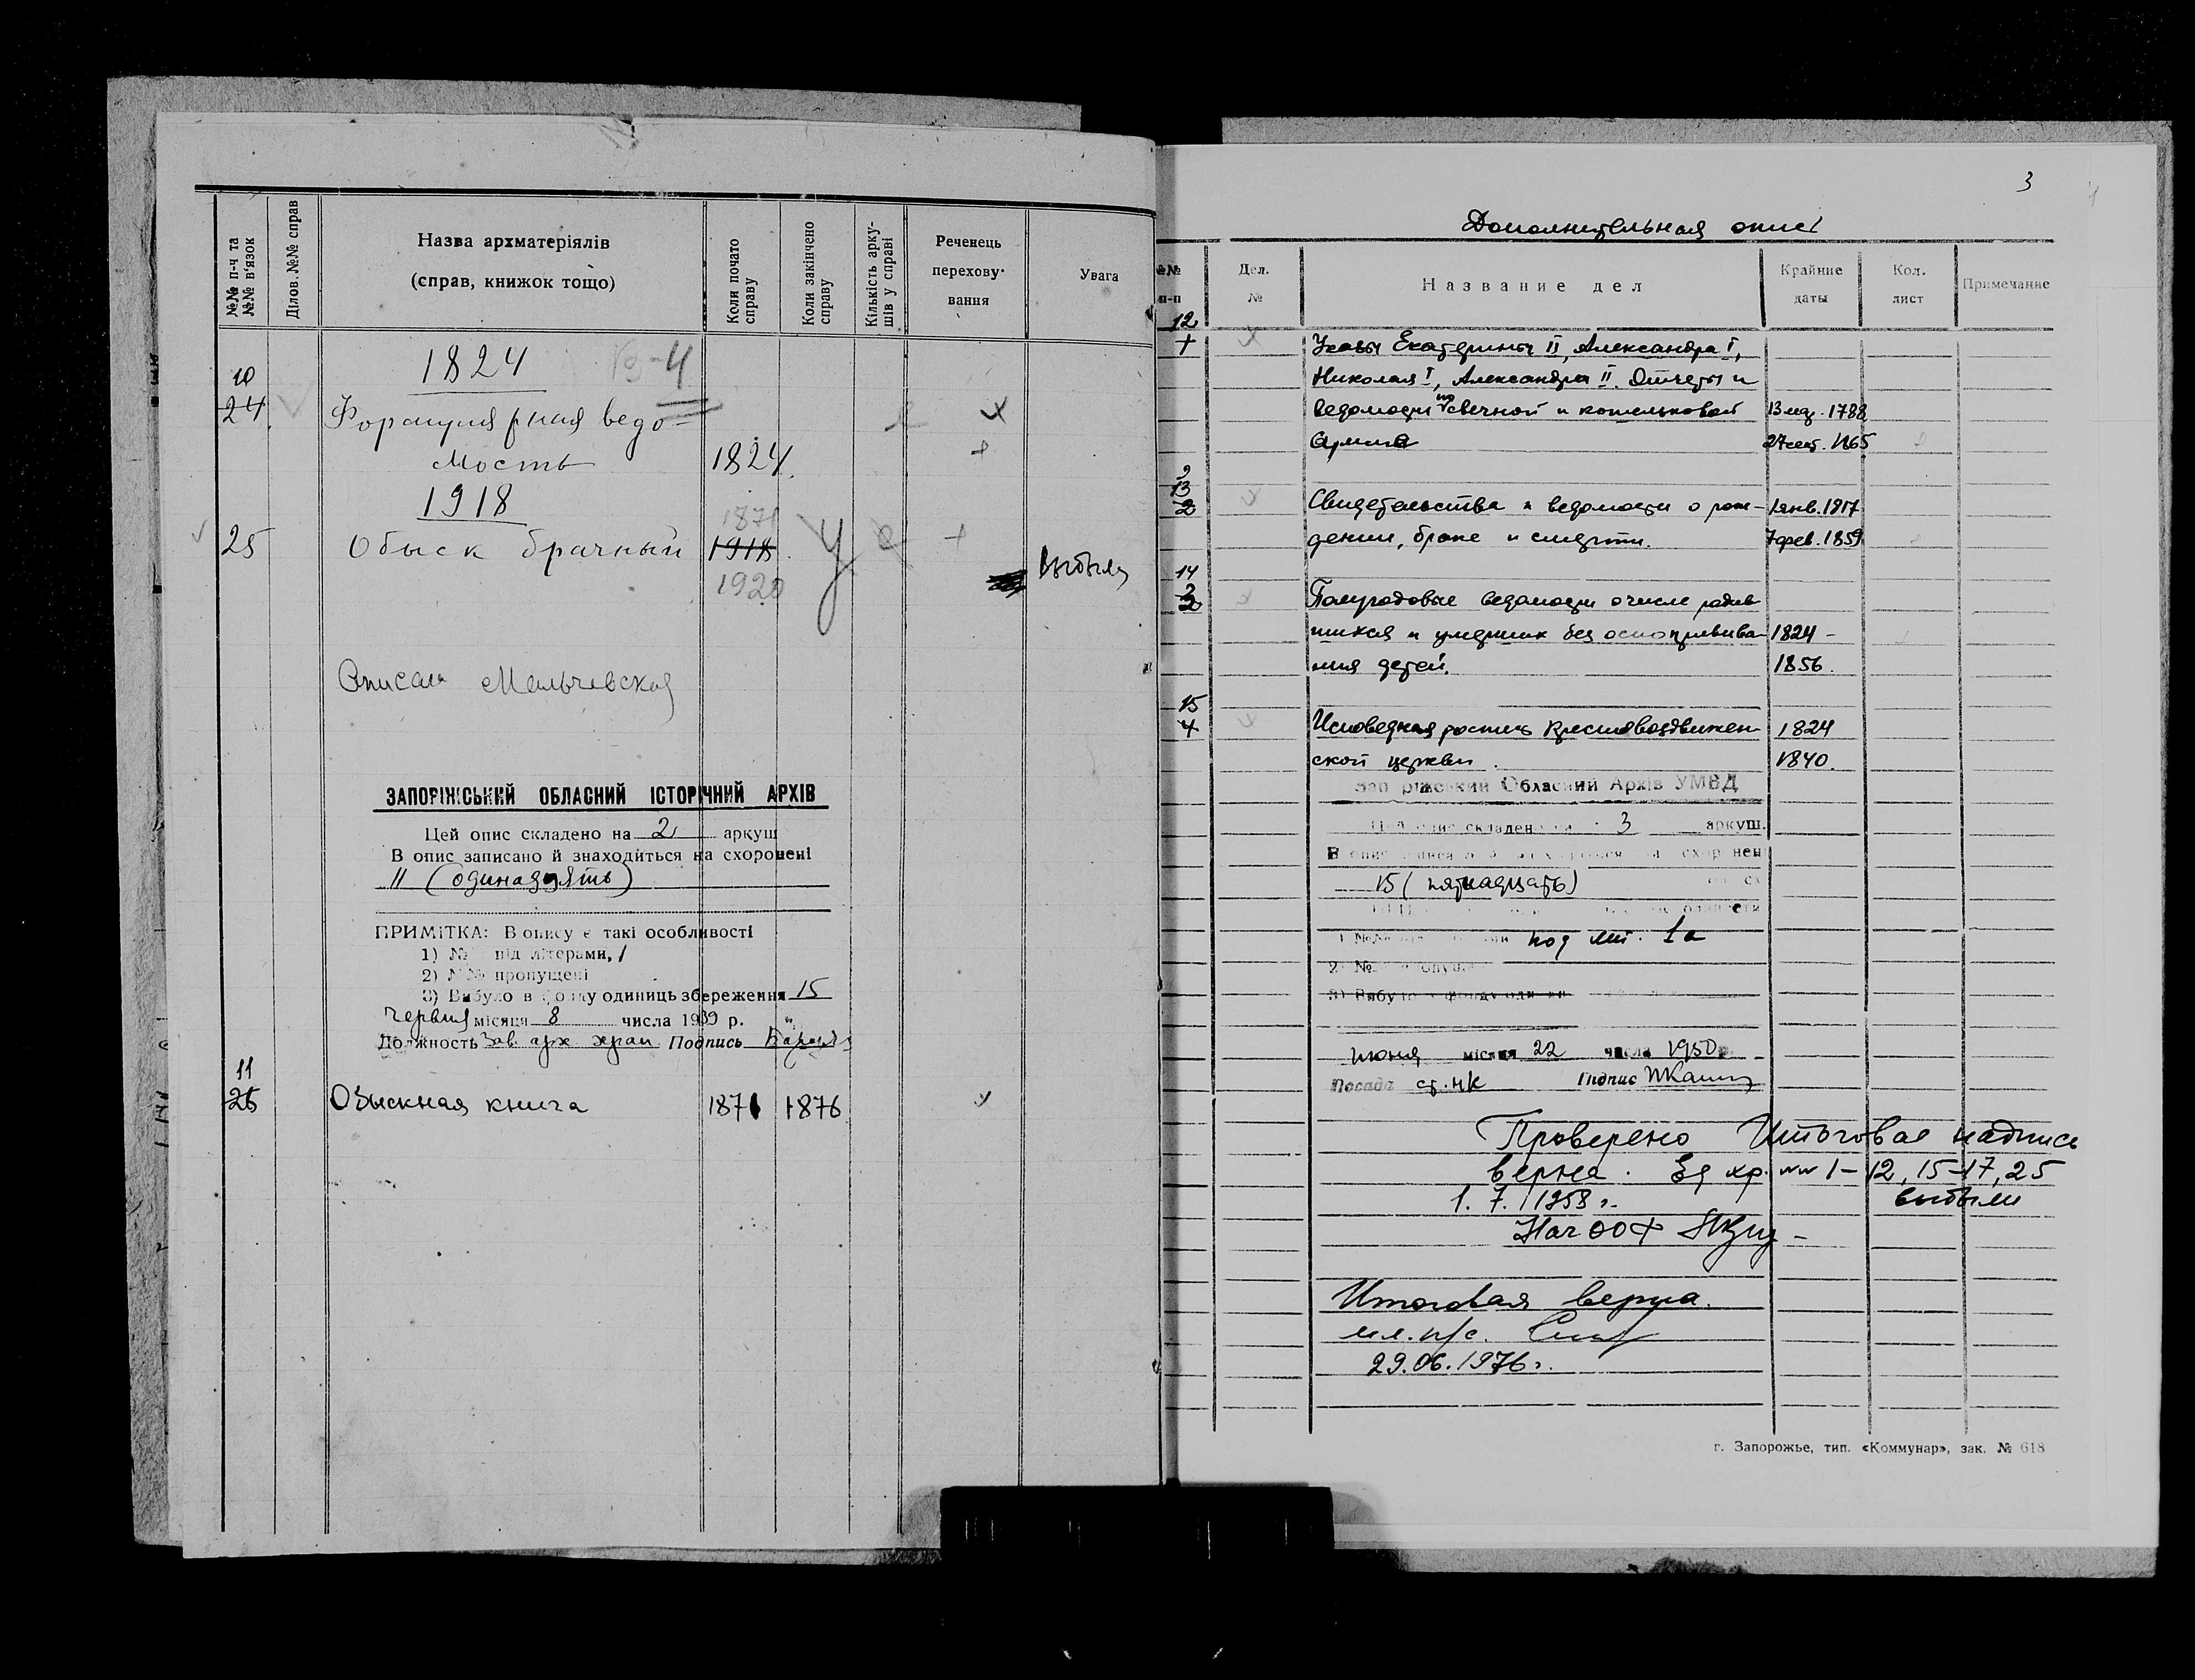 №№ п-ч та №№ в'язок
Ділов. №№ справ
Назва архматеріялів
(справ, книжок тощо)
Коли почато справу
Коли закінчено справу
Кількість арку-
шів у справі
Реченець
перехову-
вання
Увага
1824
4
10
24
Формулярная ведо=
мость 1824.
1918
1871
25 Обыск брачный 1918.
1920
Выбыл
Описала Мальчевская
ЗАПОРІЖСЬКИЙ ОБЛАСНИЙ ІСТОРИЧНИЙ АРХІВ
Цей опис складено на 2 аркуш
В опис записано й знаходиться на схоронені
11 (одинадцять)
ПРИМІТКА: В опису є такі особливості
1) №№ під літерами, 1
2) №№ пропущені
3) Вибуло в фонду одиниць збереження 15
червня місяця 8 числа 1939 р.
Должность Зав. арх хран Подпись
11
26 Обыскная книга 1871 1876
3
Дополнительная опись
№№
п-п
Дел.
№
Название дел
Крайние
даты
Кол.
лист
Примечание
12
1 Указы Екатерины II, Александра I,
Николая I, Александра II. Отчеты и
ведомости по свечной и кошельковой 13 1788
27 сент. 1865
13
2 Свидетельства и ведомости о рож- 1 янв. 1817
дении, браке и смерти. 7 фев. 1859
14
3 Полугодовые ведомости о числе родив
шихся и умерших без оспопрививa- 1824 -
ния детей. 1856.
15
4 Исповедная роспись Крестовоздвижен- 1824
ской церкви. 1840.
Запоріжский Обласний Архів УМВД
Цей опис складено на 3 аркуш.
В опис
15 (пятнадцать)
под лит. 1а
2) №№ пропущ
3) Вибуло з фонду один
июня місяця 22 числа 1950 р.
Посада ст. н/с Підпис
Проверено Итоговая надпись
верна. Ед хр. №№ 1-12, 15-17, 25
1. 7. 1958 г. выбыли
Нач ООФ
Итоговая верна.
29.06.1976 г.
г. Запорожье, тип. «Коммунар», зак. № 618